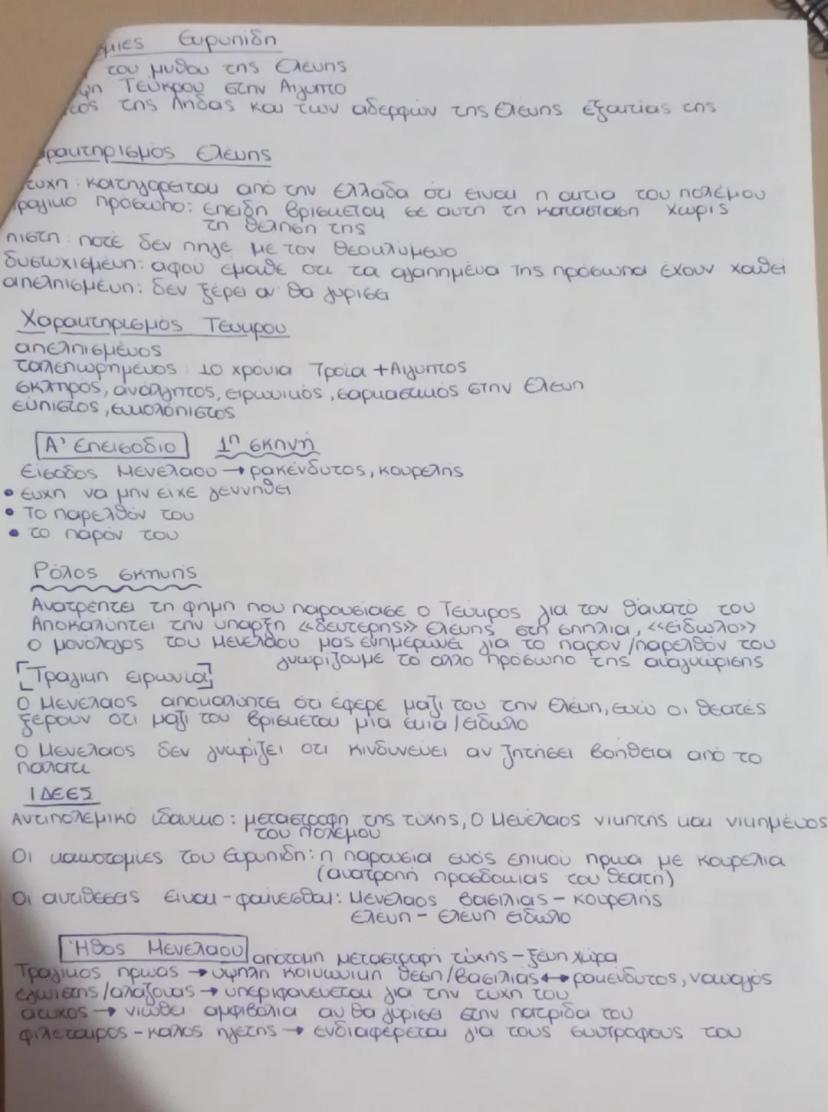 Ευρυπίδη
του μυθου της Ελενης
Τεύκρου στην Αίγυπτο
της Λήδας και των αδερφών της Ελενης εξαιτίας της
Ελενης
κατηγορείται από την Ελλαδα οτι ειναι η αιτια του πολέμου
προσωπο: επειδη βρισκεται σε αυτη τη κατασταση χωρις
τη θεληση της
πιστη: ποτέ δεν πηγε με τον Θεοκλυμενο
δυστυχισμένη: αφου εμαθε οτι τα αγαπημένα της πρόσωπα έχουν χαθει
απελπισμένη: δεν ξέρει αν θα γυρισει
Χαρακτηρισμος Τευκρου
απελπισμένος
ταλεπωρημένος: 10 χρόνια Τροία + Αίγυπτος
σκληρος, αναλγητος, ειρωνικός, σαρκαστικός στην Ελενη
εύπιστος, ευκολόπιστος
Α' Επεισόδιο 1η σκηνή
Είσοδος Μενελαου → ρακένδυτος, κουρελης
• ευχη να μην ειχε γεννηθεί
• Το παρελθόν του
• το παρόν του
Ρόλος σκηνης
Ανατρέπει τη φημη που παρουσίασε ο Τεύκρος για τον θανατό του
Αποκαλύπτει την υπαρξη «δευτερης» Ελενης στη σπηλια, «είδωλο»
ο μονόλογος του Μενελαου μας ενημερώνει για το παρον/παρελθόν του
γνωρίζουμε το αλλο πρόσωπο της αναγνώρισης
[Τραγικη ειρωνια]
Ο Μενελαος αποκαλύπτει ότι έφερε μαζι του την Ελένη, ενώ οι θεατές
ξερουν οτι μαζι του βρισκεται μια σκια/είδωλο
Ο Μενελαος δεν γνωρίζει οτι κινδυνεύει αν ζητησει βοήθεια από το
παλατι
ΙΔΕΕΣ
Αντιπολεμικό ιδανικο: μεταστροφη της τυχης, Ο Μενέλαος νικητης και νικημένος
του πολεμου
Οι καινοτομίες του Ευριπίδη: η παρουσια ενός επικου ηρωα με κουρελια
(ανατροπή προσδοκιας του θεατή)
Οι αντιθεσεις ειναι - φαίνεσθαι: Μενέλαος βασιλιας - κουρελής
Ελενη - Ελενη ειδωλο
Ήθος Μενελαου απότομη μεταστροφή τύχης - ξένη χώρα
Τραγικος ηρωας → υψηλη κοινωνικη θεση/βασιλιας ↔ ρακενδυτος, ναυαγός
εγωιστης/αλαζονας → υπεριφανευεται για την τυχη του
ατυχος → νιώθει αμφιβολία αν θα γυρισει στην πατριδα του
φιλεταιρος - καλος ηγετης → ενδιαφέρεται για τους συντροφους του